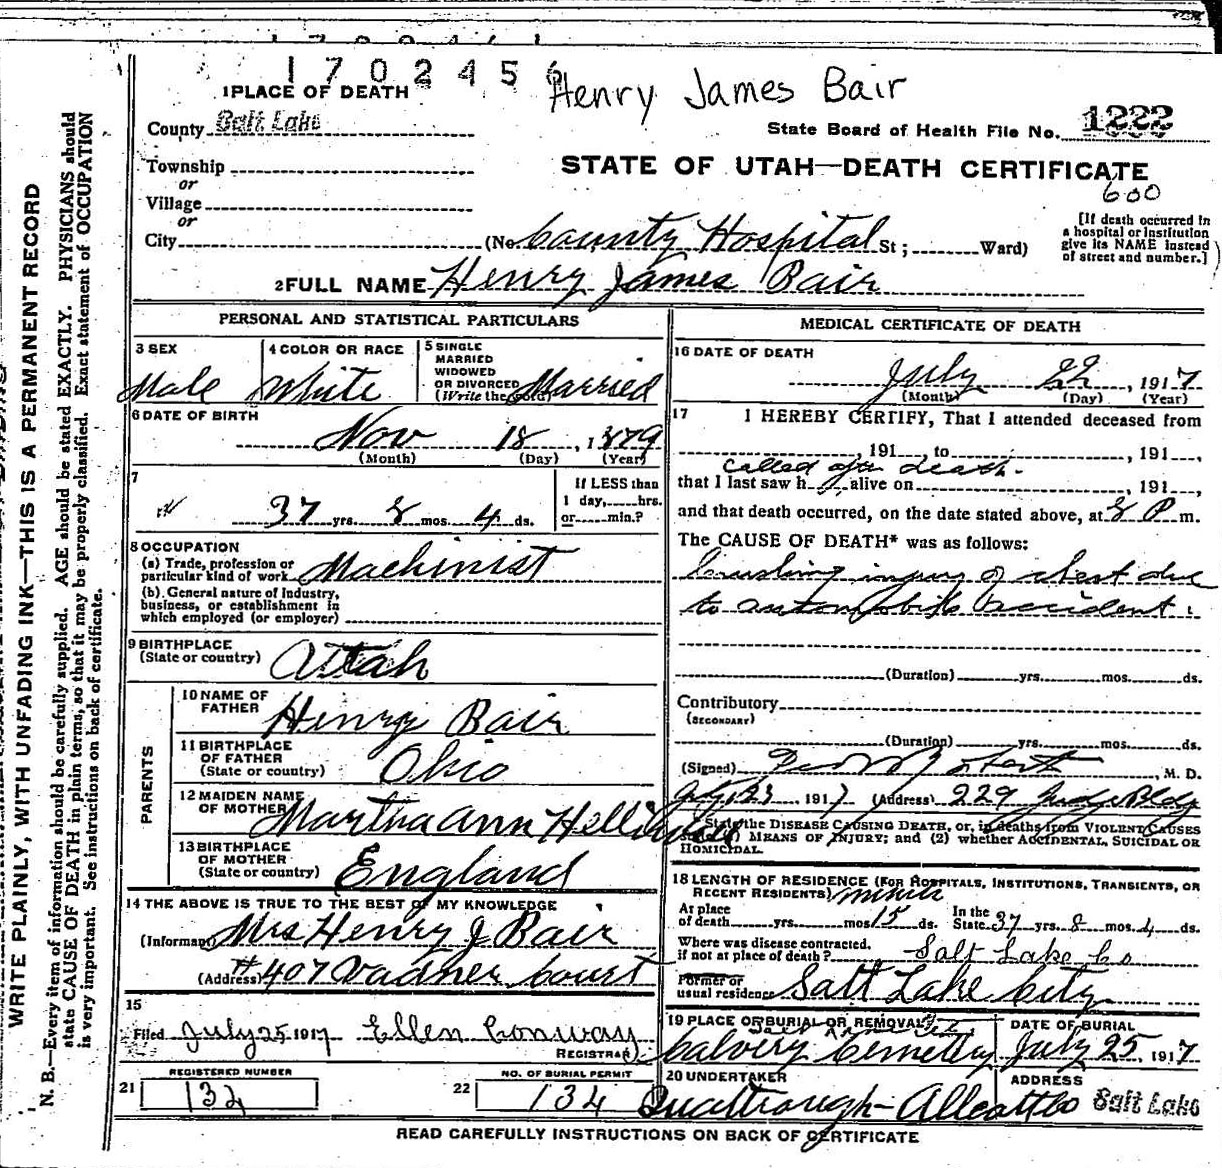 1702456
Henry James Bair
1 PLACE OF DEATH
County Salt Lake
State Board of Health File No. 1222
Township
or
Village
or
City
STATE OF UTAH—DEATH CERTIFICATE
600
(No County Hospital St ; Ward)
[If death occurred in
a hospital or institution
give its NAME instead
of street and number.]
2 FULL NAME Henry James Bair
PERSONAL AND STATISTICAL PARTICULARS
3 SEX
Male
4 COLOR OR RACE
White
5 SINGLE
MARRIED
WIDOWED
OR DIVORCED
(Write the word) Married
6 DATE OF BIRTH
Nov 18, 1879
(Month) (Day) (Year)
7
37 yrs. 8 mos. 4 ds.
If LESS than
1 day, hrs.
or min.?
8 OCCUPATION
(a) Trade, profession or
particular kind of work Machinist
(b) General nature of Industry,
business, or establishment in
which employed (or employer)
9 BIRTHPLACE
(State or country) Utah
PARENTS
10 NAME OF
FATHER Henry Bair
11 BIRTHPLACE
OF FATHER
(State or country) Ohio
12 MAIDEN NAME
OF MOTHER Martha Ann
13 BIRTHPLACE
OF MOTHER
(State or country) England
14 THE ABOVE IS TRUE TO THE BEST OF MY KNOWLEDGE
(Informant) Mrs Henry J Bair
(Address) #407 Court
15
Filed July 25 1917 Ellen Conway
REGISTRAR
21
REGISTERED NUMBER
134
22
NO. OF BURIAL PERMIT
134
MEDICAL CERTIFICATE OF DEATH
16 DATE OF DEATH
July 22, 1917
(Month) (Day) (Year)
17 I HEREBY CERTIFY, That I attended deceased from
, 191 , to , 191 ,
called after death.
that I last saw h alive on , 191 ,
and that death occurred, on the date stated above, at 8 P m.
The CAUSE OF DEATH* was as follows:
Crushing injury of chest due
to automobile accident.
(Duration) yrs. mos. ds.
Contributory
(SECONDARY)
(Duration) yrs. mos. ds.
(Signed) , M. D.
July 23, 1917 (Address) 229 Judge Bldg
State the DISEASE CAUSING DEATH, or, in deaths from VIOLENT CAUSES
MEANS OF INJURY; and (2) whether ACCIDENTAL, SUICIDAL OR
HOMICIDAL.
18 LENGTH OF RESIDENCE (FOR HOSPITALS, INSTITUTIONS, TRANSIENTS, OR
RECENT RESIDENTS)
At place
of death yrs. mos 15 ds.
In the
State 37 yrs. 8 mos. 4 ds.
Where was disease contracted,
if not at place of death? Salt Lake Co
Former or
usual residence Salt Lake City
19 PLACE OF BURIAL OR REMOVAL
Calvery Cemetery
DATE OF BURIAL
July 25, 1917
20 UNDERTAKER
Quattrough-
ADDRESS
Salt Lake
READ CAREFULLY INSTRUCTIONS ON BACK OF CERTIFICATE
WRITE PLAINLY, WITH UNFADING INK—THIS IS A PERMANENT RECORD
N. B.—Every item of information should be carefully supplied. AGE should be stated EXACTLY. PHYSICIANS should
state CAUSE OF DEATH in plain terms, so that it may be properly classified. Exact statement of OCCUPATION
is very important. See instructions on back of certificate.